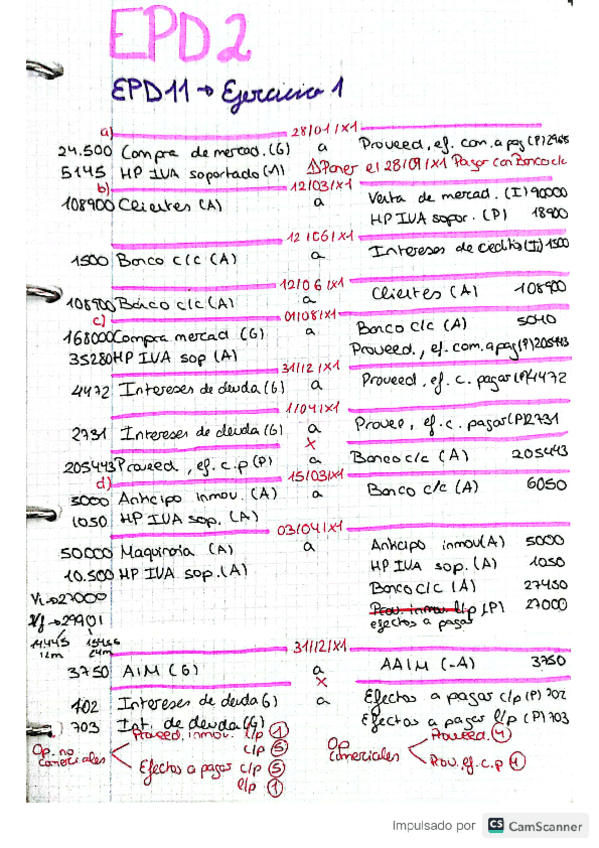 EPD2
EPD11 → Ejercicio 1
a) 28/01/X1
24.500 Compra de mercad. (G) a Proveed, ef. com. a pag (P) 29645
5145 HP IVA soportado (A) ⚠Poner el 28/09/X1 Pagar con Banco c/c
b) 12/03/X1
108900 Clientes (A) a Venta de mercad. (I) 90000
HP IVA sopor. (P) 18900
12/06/X1
1500 Banco c/c (A) a Intereses de crédito (I) 1500
12/06/X1
108900 Banco c/c (A) a Clientes (A) 108900
c) 01/08/X1
168000 Compra mercad (G) a Banco c/c (A) 5040
35280 HP IVA sop (A) Proveed., ef. com. a pag (P) 205443
31/12/X1
4472 Intereses de deuda (G) a Proveed, ef. c. pagar (P) 4472
1/04/X1
2731 Intereses de deuda (G) a Provee, ef. c. pagar (P) 2731
X
205443 Proveed, ef. c.p (P) a Banco c/c (A) 205443
d) 15/03/X1
5000 Anticipo inmov. (A) a Banco c/c (A) 6050
1050 HP IVA sop. (A)
03/04/X1
50000 Maquinaria (A) a Anticipo inmov (A) 5000
10.500 HP IVA sop. (A) HP IVA sop. (A) 1050
Vi → 27000 Banco c/c (A) 27450
Prov. inmov. l/p (P) 27000
Vf → 29901 efectos a pagar
14445 15456
12m 24m
31/12/X1
3750 AIM (G) a AAIM (-A) 3750
X
402 Intereses de deuda G) a Efectos a pagar c/p (P) 702
703 Int. de deuda (G) Efectos a pagar l/p (P) 703
Op. no comerciales
Proveed. inmov. l/p 1
c/p 5
Efectos a pagar c/p 5
l/p 1
Op. comerciales
Proveed. 4
Prov. ef. c.p 4
Impulsado por CS CamScanner